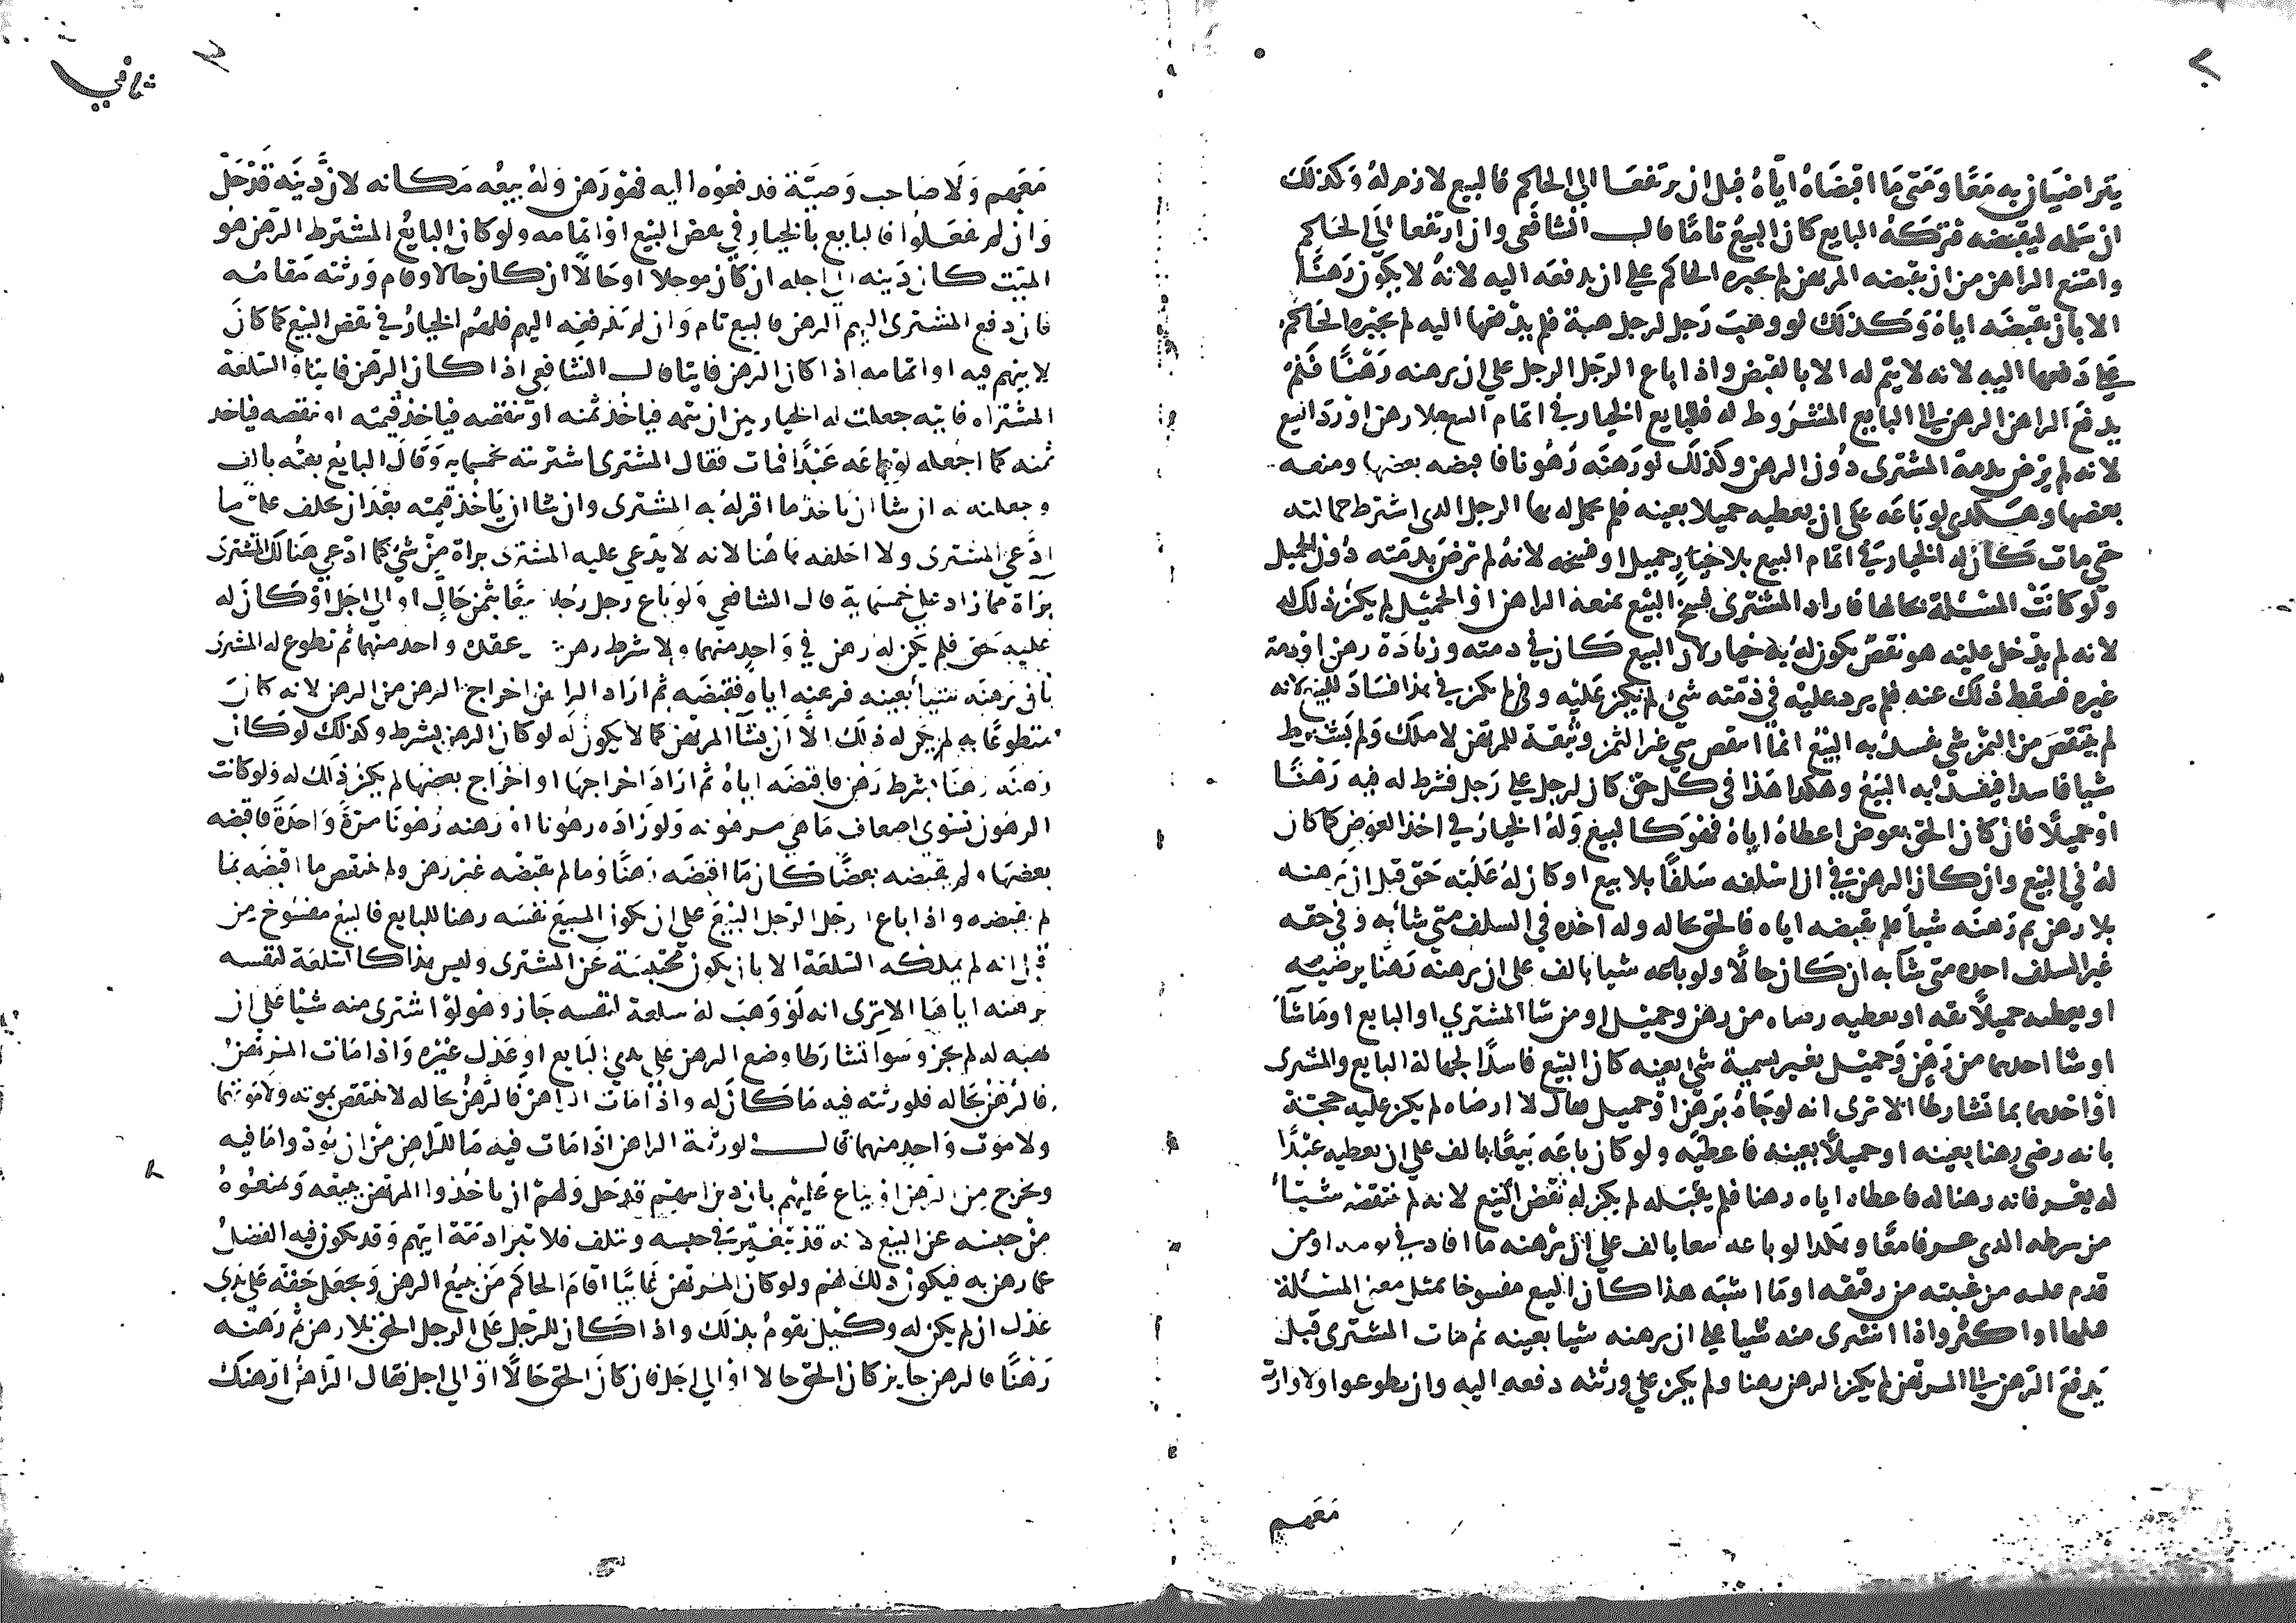 يتراضيان به معا ومتى ما اقبضاه اياه قبل ان يرتفعا الى الحاكم فالبيع لازم له وكذلك
ان سلمه ليقبضه فتركه البايع كان البيع تاما قال الشافعى وان ارتفعا الى الحاكم
وامتنع الراهن من ان يقبضه المرتهن لم يجبره الحاكم على ان يدفعه اليه لانه لا يكون رهنا
الا بان يقبضه اياه وكذلك لو وهب رجل لرجل هبة فلم يدفعها اليه لم يجبره الحاكم
على دفعها اليه لانه لا يتم له الا بالقبض واذا باع الرجل الرجل على ان يرهنه رهنا فلم
يدفع الراهن الرهن الى البايع المشروط له فللبايع الخيار في اتمام البيع بلا رهن او رد البيع
لانه لم يرض بذمة المشترى دون الرهن وكذلك لو رهنه رهونا فاقبضه بعضها ومنعه
بعضها وهكذى لو باعه على ان يعطيه حميلا بعينه فلم يحمل له بها الرجل الذى اشترط حمالته
حتى مات كان له الخيار في اتمام البيع بلا حميل او فسخه لانه لم يرض بذمته دون الحميل
ولو كانت المسئلة بحالها فاراد المشترى فسخ البيع بمنعه الراهن او الحميل لم يكن ذلك له
لانه لم يدخل عليه هو نقص يكون له به خيار لان البيع كان في ذمته وزيادة رهن او ذمة
غيره فسقط ذلك عنه فلم يرد عليه في ذمته شى لم يكن عليه ولم يكن في هذا فساد للبيع لانه
لم ينتقص من الثمن شى يفسد به البيع انما انتقص شى غير الثمن وثيقة للمرتهن لا ملك ولم يشترط
شيا فاسدا فيفسد به البيع وهكذا هذا في كل حق كان لرجل على رجل فشرط له فيه رهنا
او حميلا فان كان الحق بعوض اعطاه اياه فهو كالبيع وله الخيار في اخذ العوض كما كان
له في البيع وان كان الرهن في ان اسلفه سلفا بلا بيع او كان له عليه حق قبل ان يرهنه
بلا رهن ثم رهنه شيا فلم يقبضه اياه فالحق بحاله وله اخذه في السلف متى شا به وفي حقه
غير السلف اخذه متى شا به ان كان حالا ولو باعه شيا بالف على ان يرهنه رهنا يرضيه
او يعطيه حميلا ثقة او يعطيه رضاه من رهن وحميل او من شا المشتري او البايع او ما شا
او شا احدهما من رهن وحميل بغير تسمية شى بعينه كان البيع فاسدا لجهالة البايع والمشترى
او احدهما بما تشارطا الا ترى انه لو جاه برهن او حميل فقال لا ارضاه لم يكن عليه حجة
بانه رضى رهنا بعينه او حميلا بعينه فاعطيه ولو كان باعه بيعا بالف على ان يعطيه عبدا
له يعرفانه رهنا له فاعطاه اياه رهنا فلم يقبله لم يكن له نقض البيع لانه لم ينتقصه شيا
من شرطه الذى عرفا معا وهكذا لو باعه بيعا بالف على ان يرهنه ما افاد في يومه او من
قدم عليه من غيبته من رقيقه او ما اشبه هذا كان البيع مفسوخا بمثل معنى المسئلة
قبلها او اكثر واذا اشترى منه شيا على ان يرهنه شيا بعينه ثم مات المشترى قبل
يدفع الرهن الى المرتهن لم يكن الرهن رهنا ولم يكن على ورثته دفعه اليه وان تطوعوا ولا وارث
معهم
معهم ولا صاحب وصية فدفعوه اليه فهو رهن وله بيعه مكانه لان دينه قد حل
وان لم يفعلوا فالبايع بالخيار في نقض البيع او اتمامه ولو كان البايع المشترط الرهن هو
الميت كان دينه الى اجله ان كان موجلا او حالا ان كان حالا وقام ورثته مقامه
فان دفع المشترى اليهم الرهن فالبيع تام وان لم يدفعه اليهم فلهم الخيار في نقض البيع كما كان
لابيهم فيه او اتمامه اذا كان الرهن فايتا قال الشافعي اذا كان الرهن فايتا والسلعة
المشتراه فايته جعلت له الخيار بين ان يتمه فياخذ ثمنه او ينقضه فياخذ قيمته او ينقضه فياخذ
ثمنه كما اجعله لو باعه عبدا فمات فقال المشترى اشتريته بخمسمايه وقال البايع بعته بالف
وجعلته له ان شا ان ياخذ ما اقر له به المشترى وان شا ان ياخذ قيمته بعد ان يحلف على ما
ادعى المشترى ولا احلفه هاهنا لانه لا يدعي عليه المشترى براة من شى كما ادعى هنالك المشترى
براة مما زاد على خمسماية قال الشافعي ولو باع رجل رجلا بيعا بثمن حال او الى اجل او كان له
عليه حق فلم يكن له رهن في واحد منهما ولا شرط رهن عقد واحد منهما ثم تطوع له المشترى
بان يرهنه شيا بعينه فرهنه اياه فقبضه ثم اراد الراهن اخراج الرهن من الرهن لانه كان
متطوعا به لم يكن له ذلك الا ان يشا المرتهن كما لا يكون له لو كان الرهن بشرط وكذلك لو كان
رهنه رهنا بشرط رهن فاقبضه اياه ثم اراد اخراجها او اخراج بعضها لم يكن ذلك له ولو كانت
الرهون تسوى اضعاف ما هي مرهونه ولو زاده رهونا او رهنه رهونا مرة واحدة فاقبضه
بعضها ولم يقبضه بعضا كان ما اقبضه رهنا وما لم يقبضه غير رهن ولم ينتقض ما اقبضه بما
لم يقبضه واذا باع الرجل الرجل البيع على ان يكون المبيع نفسه رهنا للبايع فالبيع مفسوخ من
قبل انه لم يملكه السلعة الا بان يكون محتبسة عن المشترى وليس هذا كالسلعة لنفسه
يرهنه اياها الا ترى انه لو وهب له سلعة لنفسه جاز وهو لو اشترى منه شيا على ان
يهبه له لم يجز وسوا تشارطا وضع الرهن على يدي البايع او عدل غيره واذا مات المرتهن
فالرهن بحاله فلورثته فيه ما كان له واذا مات الراهن فالرهن بحاله لا ينتقض بموته ولا موتهما
ولا موت واحد منهما قال لورثة الراهن اذا مات فيه ما للراهن من ان يودوا ما فيه
ويخرج من الرهن او يباع عليهم بان دين ابيهم قد حل ولهم ان ياخذوا المرتهن ببيعه ويمنعوه
من حبسه عن البيع لانه قد يتغير في حبسه ويتلف فلا تبرا ذمة ابيهم وقد يكون فيه الفضل
عما رهن به فيكون ذلك لهم ولو كان المرتهن غايبا اقام الحاكم من يبيع الرهن ويجعل حقه على يدي
عدل ان لم يكن له وكيل يقوم بذلك واذا كان للرجل على الرجل الحق بلا رهن ثم رهنه
رهنا فالرهن جايز كان الحق حالا او الى اجل فان كان الحق حالا او الى اجل فقال الراهن ارهنك